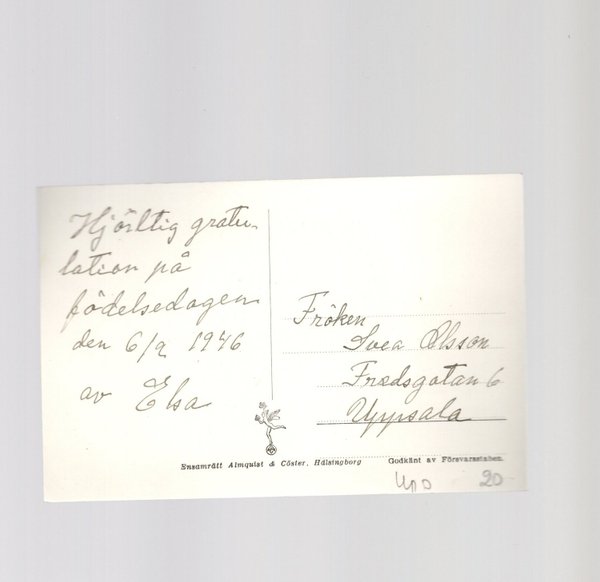 Hjärtlig gratu-
lation på
födelsedagen
den 6/9 1946
av Elsa
Fröken
Svea Olsson
Fredsgatan 6
Uppsala
Ensamrätt Almquist & Cöster, Hälsingborg
Godkänt av Försvarsstaben.
20